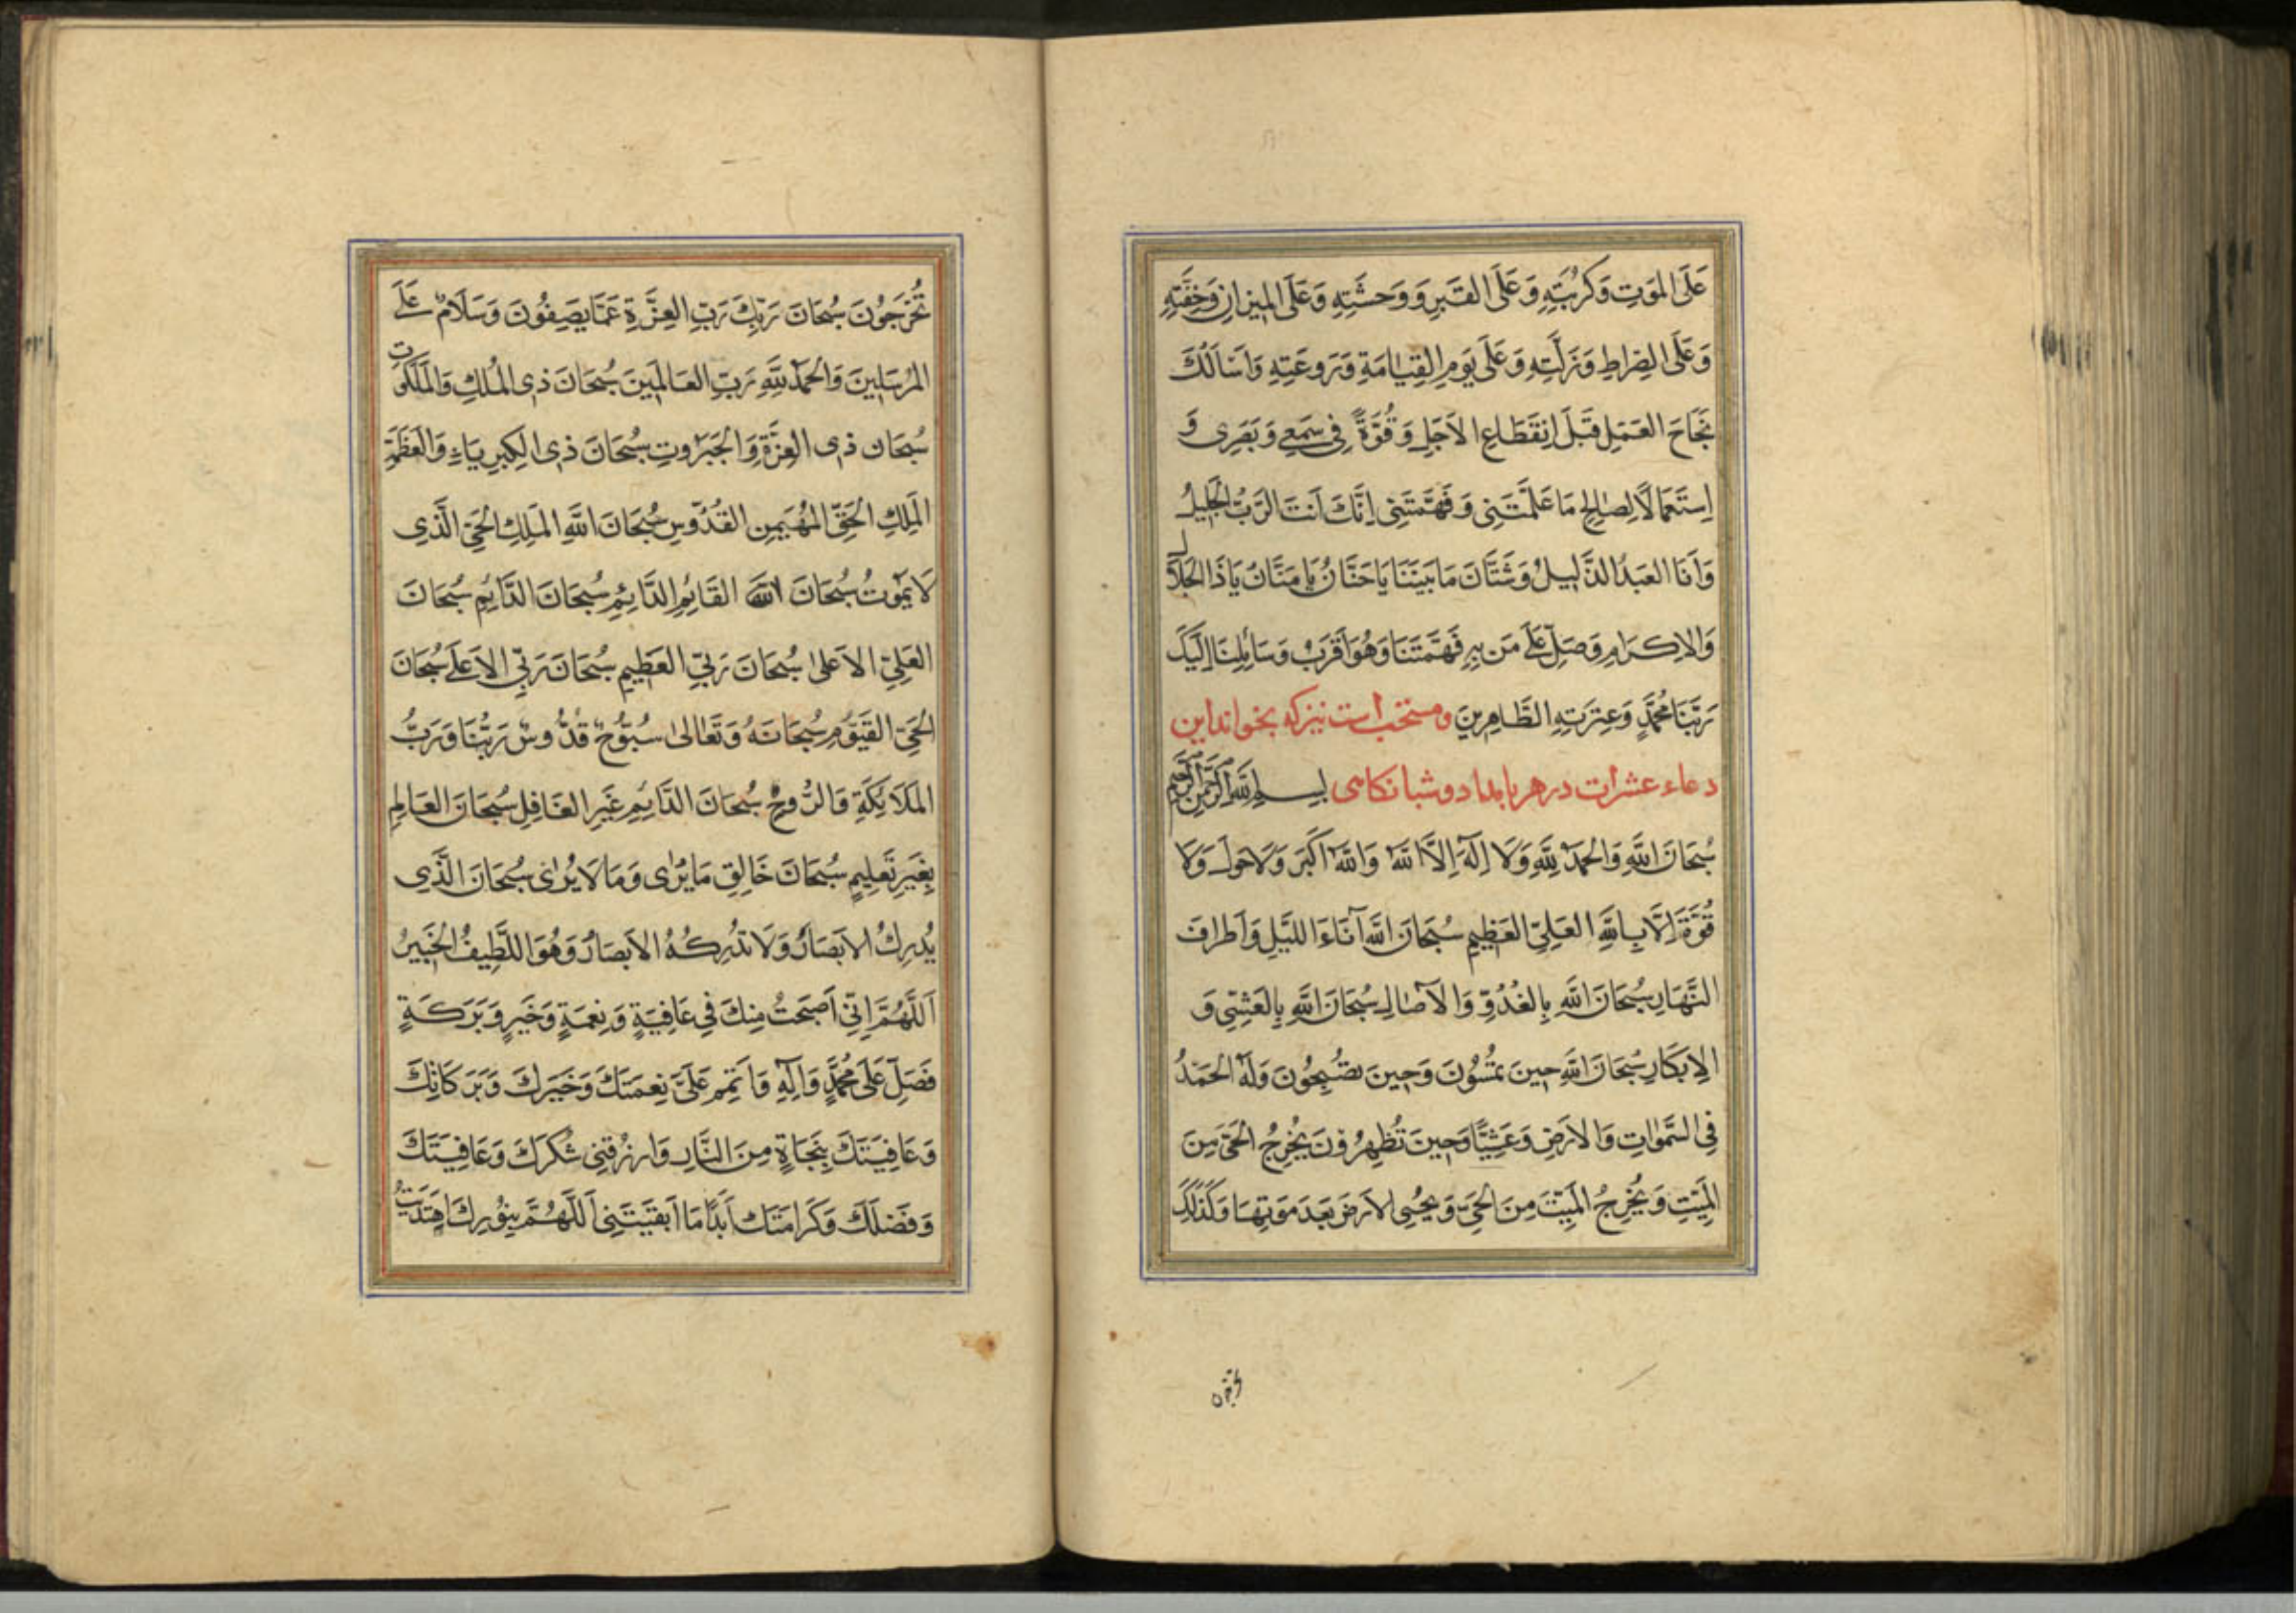 عَلَى المَوتِ وَكُربَتِهِ وَعَلَى القَبرِ وَوَحشَتِهِ وَعَلَى المِيزانِ وَخِفَّتِهِ
وَعَلَى الصِّراطِ وَزَلَّتِهِ وَعَلَى يَومِ القِيَامَةِ وَرَوعَتِهِ وَاَسْاَلُكَ
نَجَاحَ العَمَلِ قَبلَ اِنقَطَاعِ الاَجَلِ وَقُوَّةً فِى سَمعِى وَبَصَرِى وَ
اِستَعمَالًا لِصَالِحِ مَا عَلَّمتَنِى وَفَهَّمتَنِى اِنَّكَ اَنتَ الرَّبُّ الجَلِيلُ
وَاَنَا العَبدُ الذَّلِيلُ وَشَتَّانَ مَا بَينَنَا يَا حَنَّانُ يَا مَنَّانُ يَا ذَا الجَلَال
وَالاِكرَامِ وَصَلِّ عَلَى مَن بِهِ فَهَّمتَنَا وَهُوَ اَقرَبُ وَسَائِلِنَا اِلَيكَ
رَبَّنَا مُحَمَّدٍ وَعِترَتِهِ الطَّاهِرِينَ ومستحب است نیز که بخواند این
دعاء عشرات در هر بامداد و شبانکاهی بسم الله الرحمن الرحیم
سُبحَانَ اللّهِ وَالحَمدُ لِلّهِ وَلَا اِلَهَ اِلَّا اللّهُ وَاللّهُ اَكبَر وَلَا حَولَ وَلَا
قُوَّةَ اِلَّا بِاللّهِ العَلِىِّ العَظِيمِ سُبحَانَ اللّهِ آنَاءَ اللَّيلِ وَاَطرافَ
النَّهَارِ سُبحَانَ اللّهِ بِالغُدُوِّ وَالآصَالِ سُبحَانَ اللّهِ بِالعَشِىِّ وَ
الاِبكَارِ سُبحَانَ اللّهِ حِينَ تُمسُونَ وَحِينَ تُصبِحُونَ وَلَهُ الحَمدُ
فِى السَّمٰوَاتِ وَالاَرضِ وَعَشِيًّا وَحِينَ تُظهِرُونَ يُخرِجُ الحَىَّ مِنَ
المَيِّتِ وَيُخرِجُ المَيِّتَ مِنَ الحَىِّ وَيُحيِى الاَرضَ بَعدَ مَوتِهَا وَكَذٰلِكَ
تُخرَجُونَ سُبحَانَ رَبِّكَ رَبِّ العِزَّةِ عَمَّا يَصِفُونَ وَسَلَامٌ عَلَى
المُرسَلِينَ وَالحَمدُ لِلّهِ رَبِّ العَالَمِينَ سُبحَانَ ذِى المُلكِ وَالمَلَكُوت
سُبحَانَ ذِى العِزَّةِ وَالجَبَرُوتِ سُبحَانَ ذِى الكِبرِيَاءِ وَالعَظَمَةِ
المَلِكِ الحَقِّ المُهَيمِنِ القُدُّوسِ سُبحَانَ اللّهِ المَلِكِ الحَىِّ الَّذِى
لَا يَمُوتُ سُبحَانَ اللّهِ القَائِمِ الدَّائِمِ سُبحَانَ الدَّايِمِ سُبحَانَ
العَلِىِّ الاَعلٰى سُبحَانَ رَبِّىَ العَظِيمِ سُبحَانَ رَبِّىَ الاَعلَى سُبحَانَ
الحَىِّ القَيُّومِ سُبحَانَهُ وَتَعَالٰى سُبُّوحٌ قُدُّوسٌ رَبُّنَا وَرَبُّ
المَلَائِكَةِ وَالرُّوحِ سُبحَانَ الدَّايِمِ غَيرِ الغَافِلِ سُبحَانَ العَالِمِ
بِغَيرِ تَعلِيمٍ سُبحَانَ خَالِقِ مَا يُرٰى وَمَا لَا يُرٰى سُبحَانَ الَّذِى
يُدرِكُ الاَبصَارَ وَلَا تُدرِكُهُ الاَبصَارُ وَهُوَ اللَّطِيفُ الخَبِيرُ
اَللَّهُمَّ اِنِّى اَصبَحتُ مِنكَ فِى عَافِيَةٍ وَنِعمَةٍ وَخَيرٍ وَبَرَكَةٍ
فَصَلِّ عَلَى مُحَمَّدٍ وَآلِهِ وَاَتمِم عَلَىَّ نِعمَتَكَ وَخَيرَكَ وَبَرَكَاتِكَ
وَعَافِيَتَكَ بِنَجَاةٍ مِنَ النَّارِ وَارزُقنِى شُكرَكَ وَعَافِيَتَكَ
وَفَضلَكَ وَكَرامَتَكَ اَبَدًا مَا اَبقَيتَنِى اَللَّهُمَّ بِنُورِكَ اهتَدَيتُ